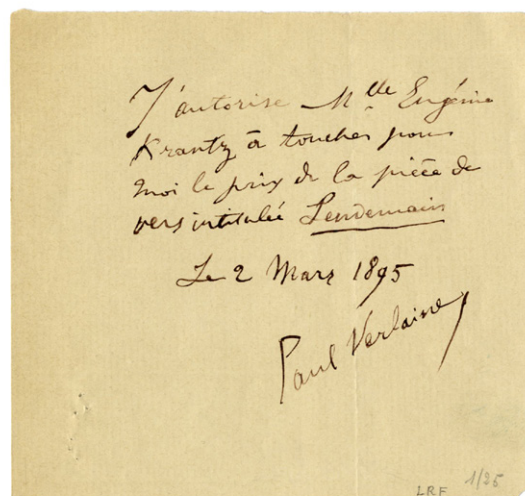 J'autorise Mlle Eugénie
Krantz à toucher pour
moi le prix de la pièce de
vers intitulée Lendemain
Le 2 Mars 1895
Paul Verlaine
LRF 1/25